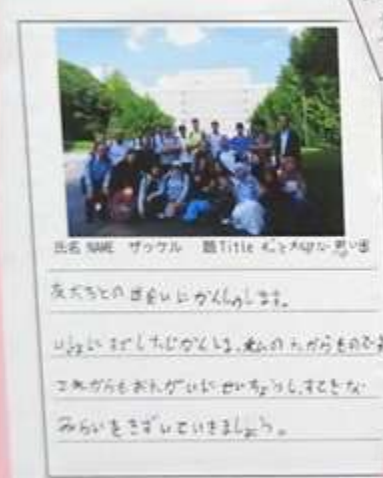 氏名 NAME ザッケル 題Title 心とメロな思い出
友だちとの出会いにかんしゃします。
いっしょにすごしたじかんは、私のたからものです
これからもおたがいにせいちょうし、すてきな
みらいをきずいていきましょう。